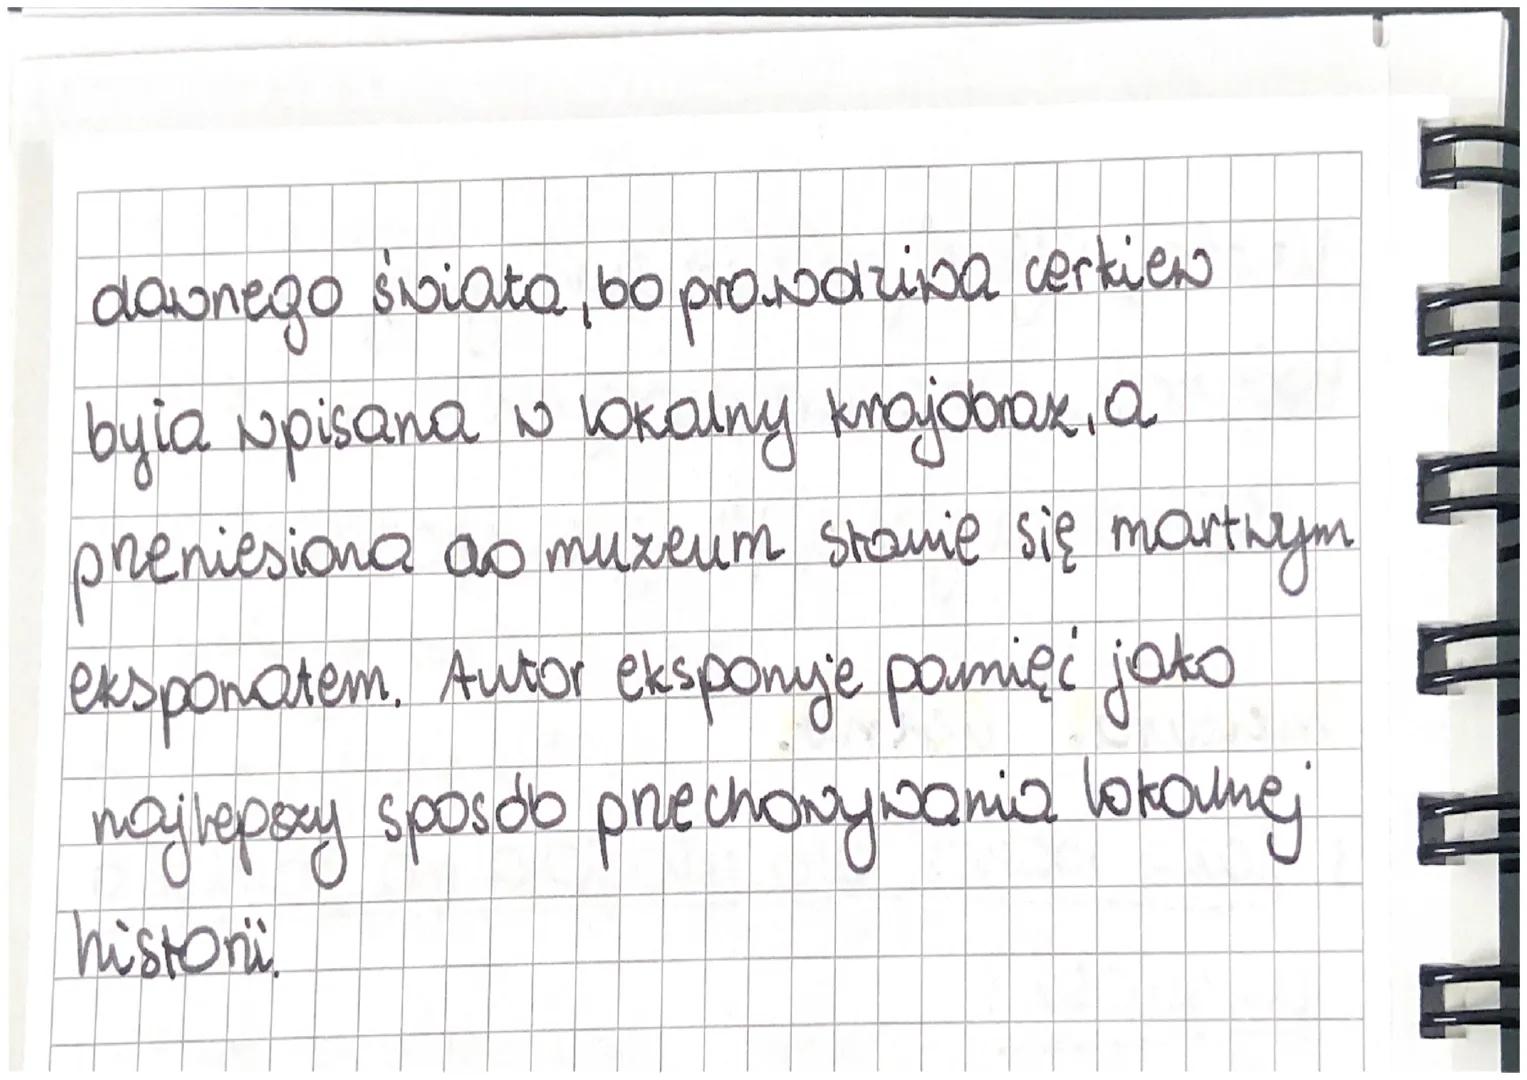 dawnego świata, bo prawdziwa cerkiew
była wpisana w lokalny krajobraz, a
przeniesiona do muzeum stanie się martwym
eksponatem. Autor eksponuje pamięć jako
najlepszy sposób przechowywania lokalnej
historii.